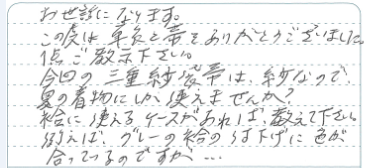 お世話になります。
この度は 草履と帯をありがとうございました。
1点ご教示下さい。
今回の三重紗袋帯は、紗なので
夏の着物にしか使えませんか?
袷に使えるケースがあれば、教えて下さい
例えば、グレーの袷の付下げに色が
合っているのですが…